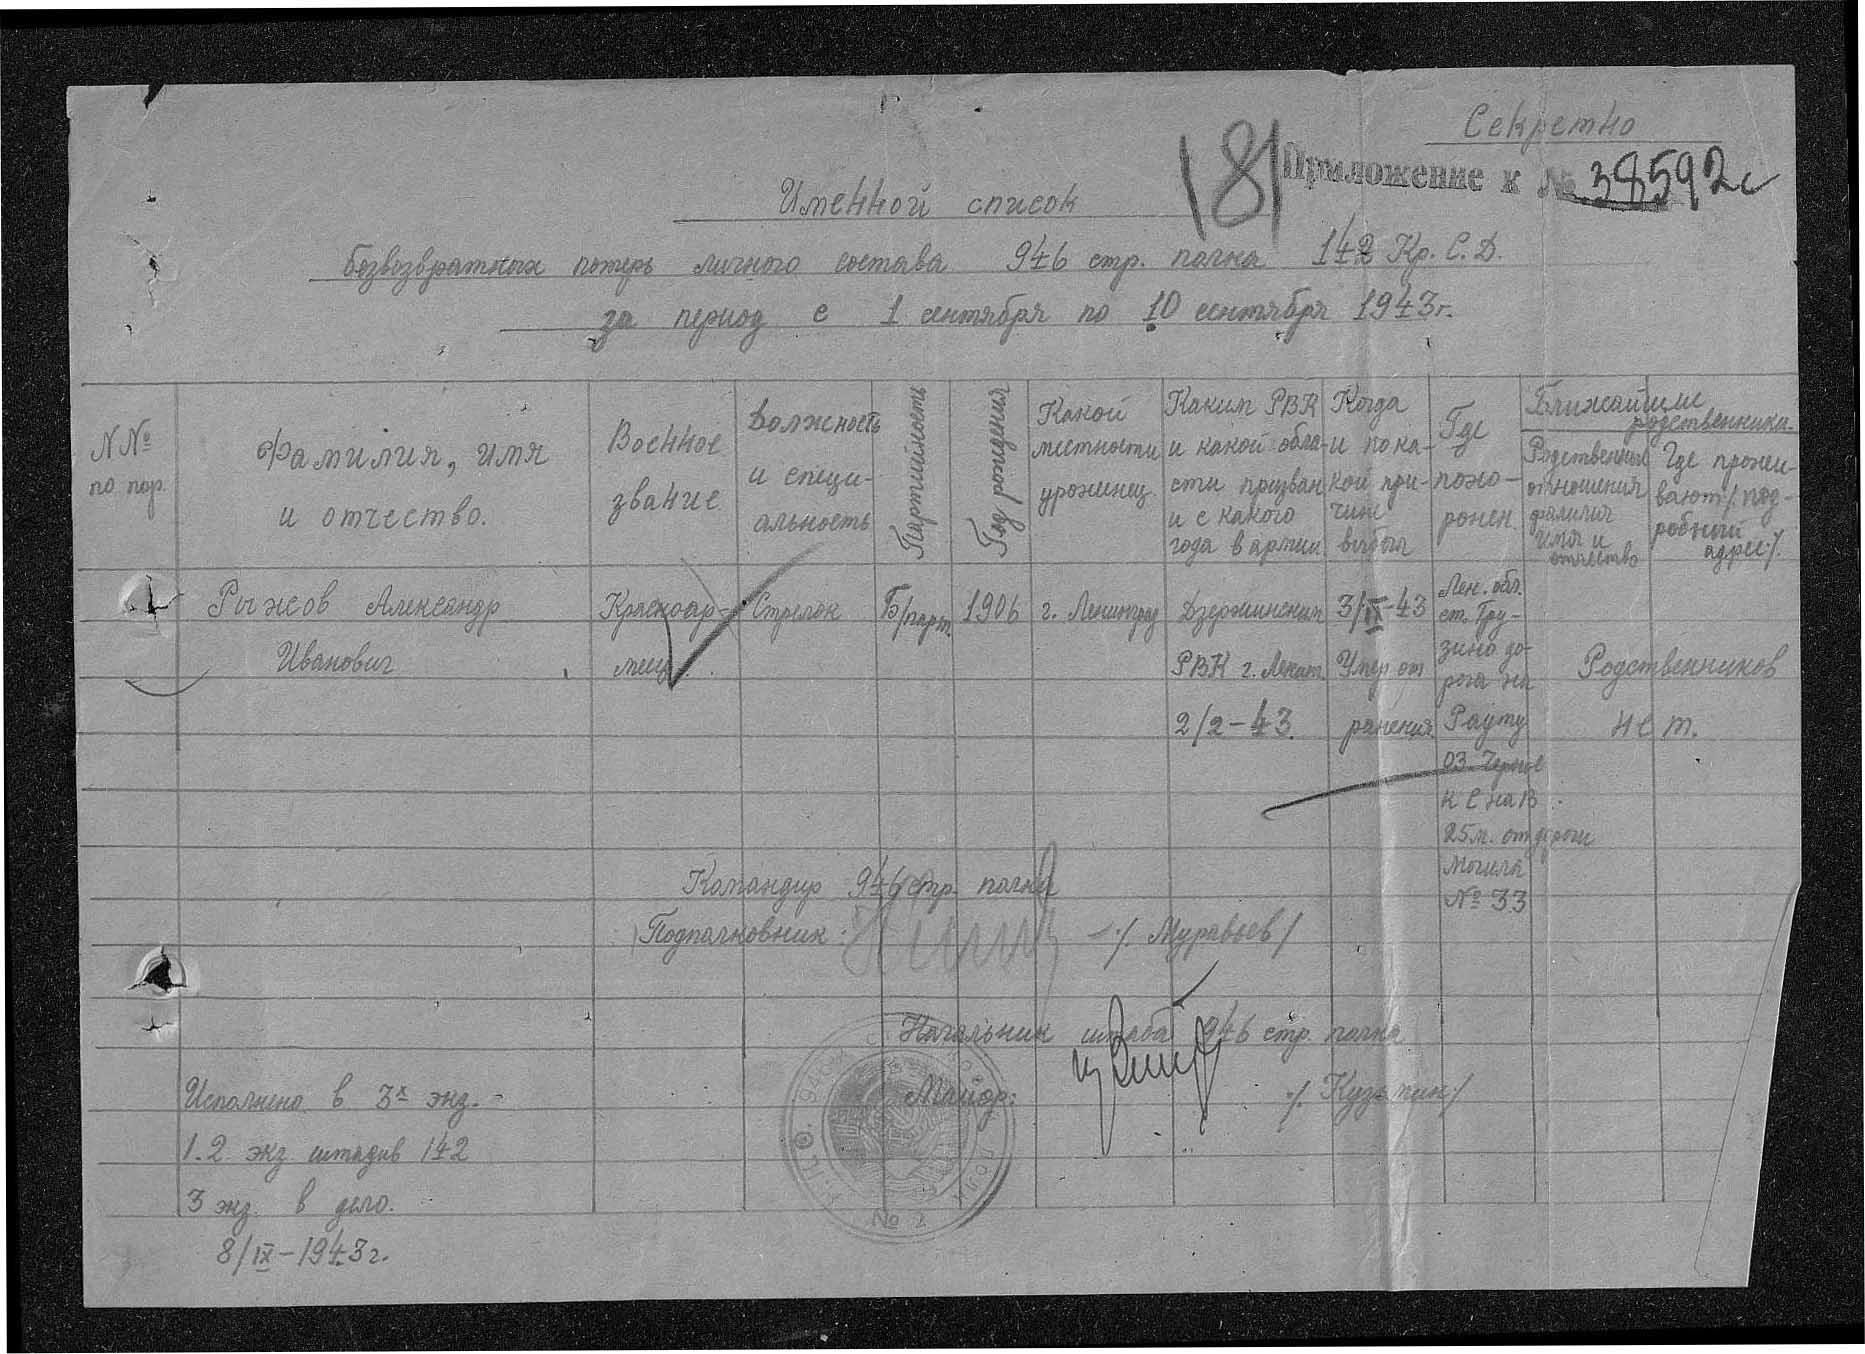 Секретно
181 Приложение к № 38592с
Именной список
безвозвратных потерь личного состава 946 стр. полка 142 Кр. С. Д.
за период с 1 сентября по 10 сентября 1943г.
N №
по пор.
Фамилия, имя
и отчество.
Военное
звание
Должность
и специ-
альность
Партийность
Год рождения
Какой
местности
урожинец
Каким РВК
и какой обла-
сти призван
и с какого
года в армии
Когда
и по ка-
кой при-
чине
выбыл
Где
похо-
ронен
Ближайшие
родственники.
Родственные
отношения
фамилия
имя и
отчество
Где прожи-
вают /под-
робный
адрес/.
1
Рыжов Александр
Иванович
Красноар-
меец.
Стрелок
Б/парт.
1906
г. Ленинград
Дзержинским
РВК г. Ленинг.
2/2-43.
3/IX-43
Умер от
ранения
Лен. обл.
ст. Гру-
зино до-
рога на
Рауту
оз. Черное
к С на В
25м. от дороги
Могила
№ 33
Родственников
нет.
Командир 946 стр. полка
Подполковник: /. Муравьев /
Начальник штаба 946 стр. полка
Майор: /. Кузьмин /
Исполнено в 3х экз.
1. 2. экз штадив 142
3 экз. в дело.
8/IX-1943г.
№ 2